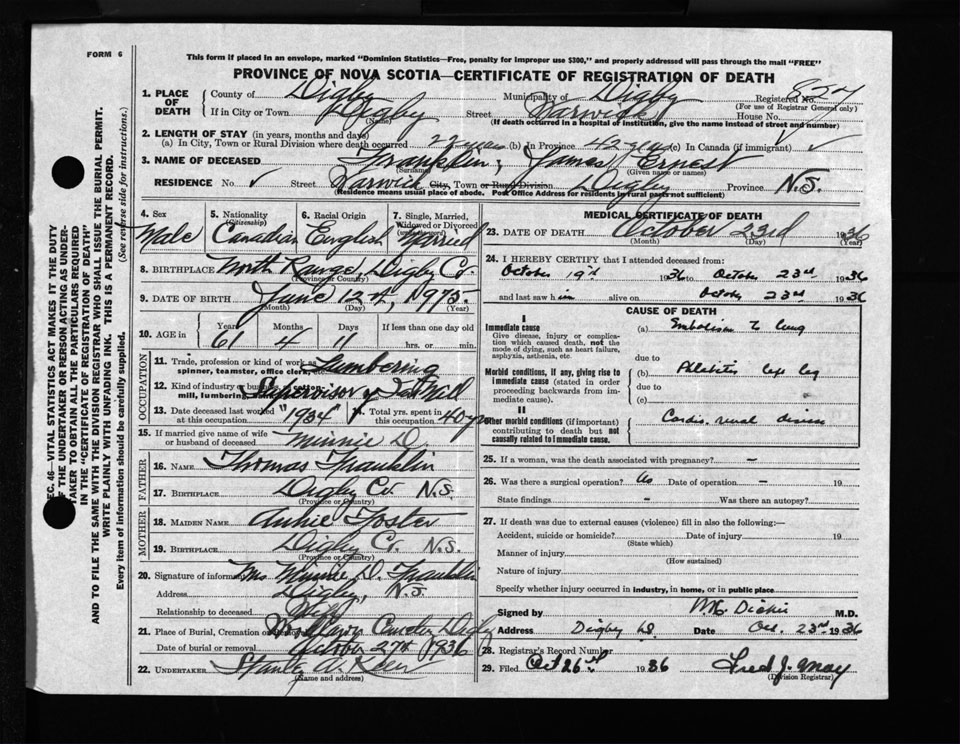 FORM 6
This form if placed in an envelope, marked "Dominion Statistics—Free, penalty for improper use $300," and properly addressed will pass through the mail "FREE"
PROVINCE OF NOVA SCOTIA—CERTIFICATE OF REGISTRATION OF DEATH
1. PLACE OF DEATH County of Digby Municipality of Digby Registered No. 827
(For use of Registrar General only)
If in City or Town Digby Street Warwick House No.
(Name) (If death occurred in a hospital of institution, give the name instead of street and number)
2. LENGTH OF STAY (in years, months and days)
(a) In City, Town or Rural Division where death occurred 22 years (b) In Province 42 years (c) In Canada (if immigrant) ✓
3. NAME OF DECEASED Franklin, James Ernest
(Surname) (Given name or names)
RESIDENCE No. ✓ Street Warwick City, Town or Rural Division Digby Province N.S.
(Residence means usual place of abode. Post Office Address for residents in rural parts not sufficient)
4. Sex Male
5. Nationality (Citizenship) Canadian
6. Racial Origin English
7. Single, Married, Widowed or Divorced Married
8. BIRTHPLACE North Range, Digby Co.
(Province or Country)
9. DATE OF BIRTH June 12th, 1975.
(Month) (Day) (Year)
10. AGE in Years 61 Months 4 Days 11 If less than one day old hrs. or min.
OCCUPATION
11. Trade, profession or kind of work as spinner, teamster, office clerk, Lumbering
12. Kind of industry or business, as cotton-mill, lumbering, Supervisor of Mill
13. Date deceased last worked at this occupation "1934" Total yrs. spent in this occupation 40 yrs
15. If married give name of wife or husband of deceased Minnie D.
FATHER
16. NAME Thomas Franklin
17. BIRTHPLACE Digby Co. N.S.
(Province or Country)
MOTHER
18. MAIDEN NAME Annie Foster
19. BIRTHPLACE Digby Co. N.S.
(Province or Country)
20. Signature of informant Mrs. Minnie D. Franklin
Address Digby, N.S.
Relationship to deceased Wife
21. Place of Burial, Cremation Digby
Date of burial or removal October 27th 1936
22. UNDERTAKER
(Name and address)
MEDICAL CERTIFICATE OF DEATH
23. DATE OF DEATH October 23rd 1936
(Month) (Day) (Year)
24. I HEREBY CERTIFY that I attended deceased from:
October 19th 1936 to October 23rd 1936
and last saw him alive on October 23rd 1936
CAUSE OF DEATH
I
Immediate cause
Give disease, injury or complication which caused death, not the mode of dying, such as heart failure, asphyxia, asthenia, etc.
(a) Embolism to lung
due to
Morbid conditions, if any, giving rise to immediate cause (stated in order proceeding backwards from immediate cause).
(b) Phlebitis left leg
due to
(c)
II
Other morbid conditions (if important) contributing to death but not causally related to immediate cause.
Cardio renal disease
25. If a woman, was the death associated with pregnancy? —
26. Was there a surgical operation? No Date of operation — 19
State findings - Was there an autopsy?
27. If death was due to external causes (violence) fill in also the following:—
Accident, suicide or homicide? Date of injury 19
(State which)
Manner of injury
(How sustained)
Nature of injury
Specify whether injury occurred in industry, in home, or in public place
Signed by Dickie M.D.
Address Digby N.S. Date Oct. 23rd 1936
28. Registrar's Record Number
29. Filed Oct 26th 1936 Fred J. May
(Division Registrar)
SEC. 46—VITAL STATISTICS ACT MAKES IT THE DUTY
OF THE UNDERTAKER OR PERSON ACTING AS UNDER-
TAKER TO OBTAIN ALL THE PARTICULARS REQUIRED
IN THE "CERTIFICATE OF REGISTRATION OF DEATH"
AND TO FILE THE SAME WITH THE DIVISION REGISTRAR WHO SHALL ISSUE THE BURIAL PERMIT.
WRITE PLAINLY WITH UNFADING INK. THIS IS A PERMANENT RECORD.
Every item of information should be carefully supplied. (See reverse side for instructions.)